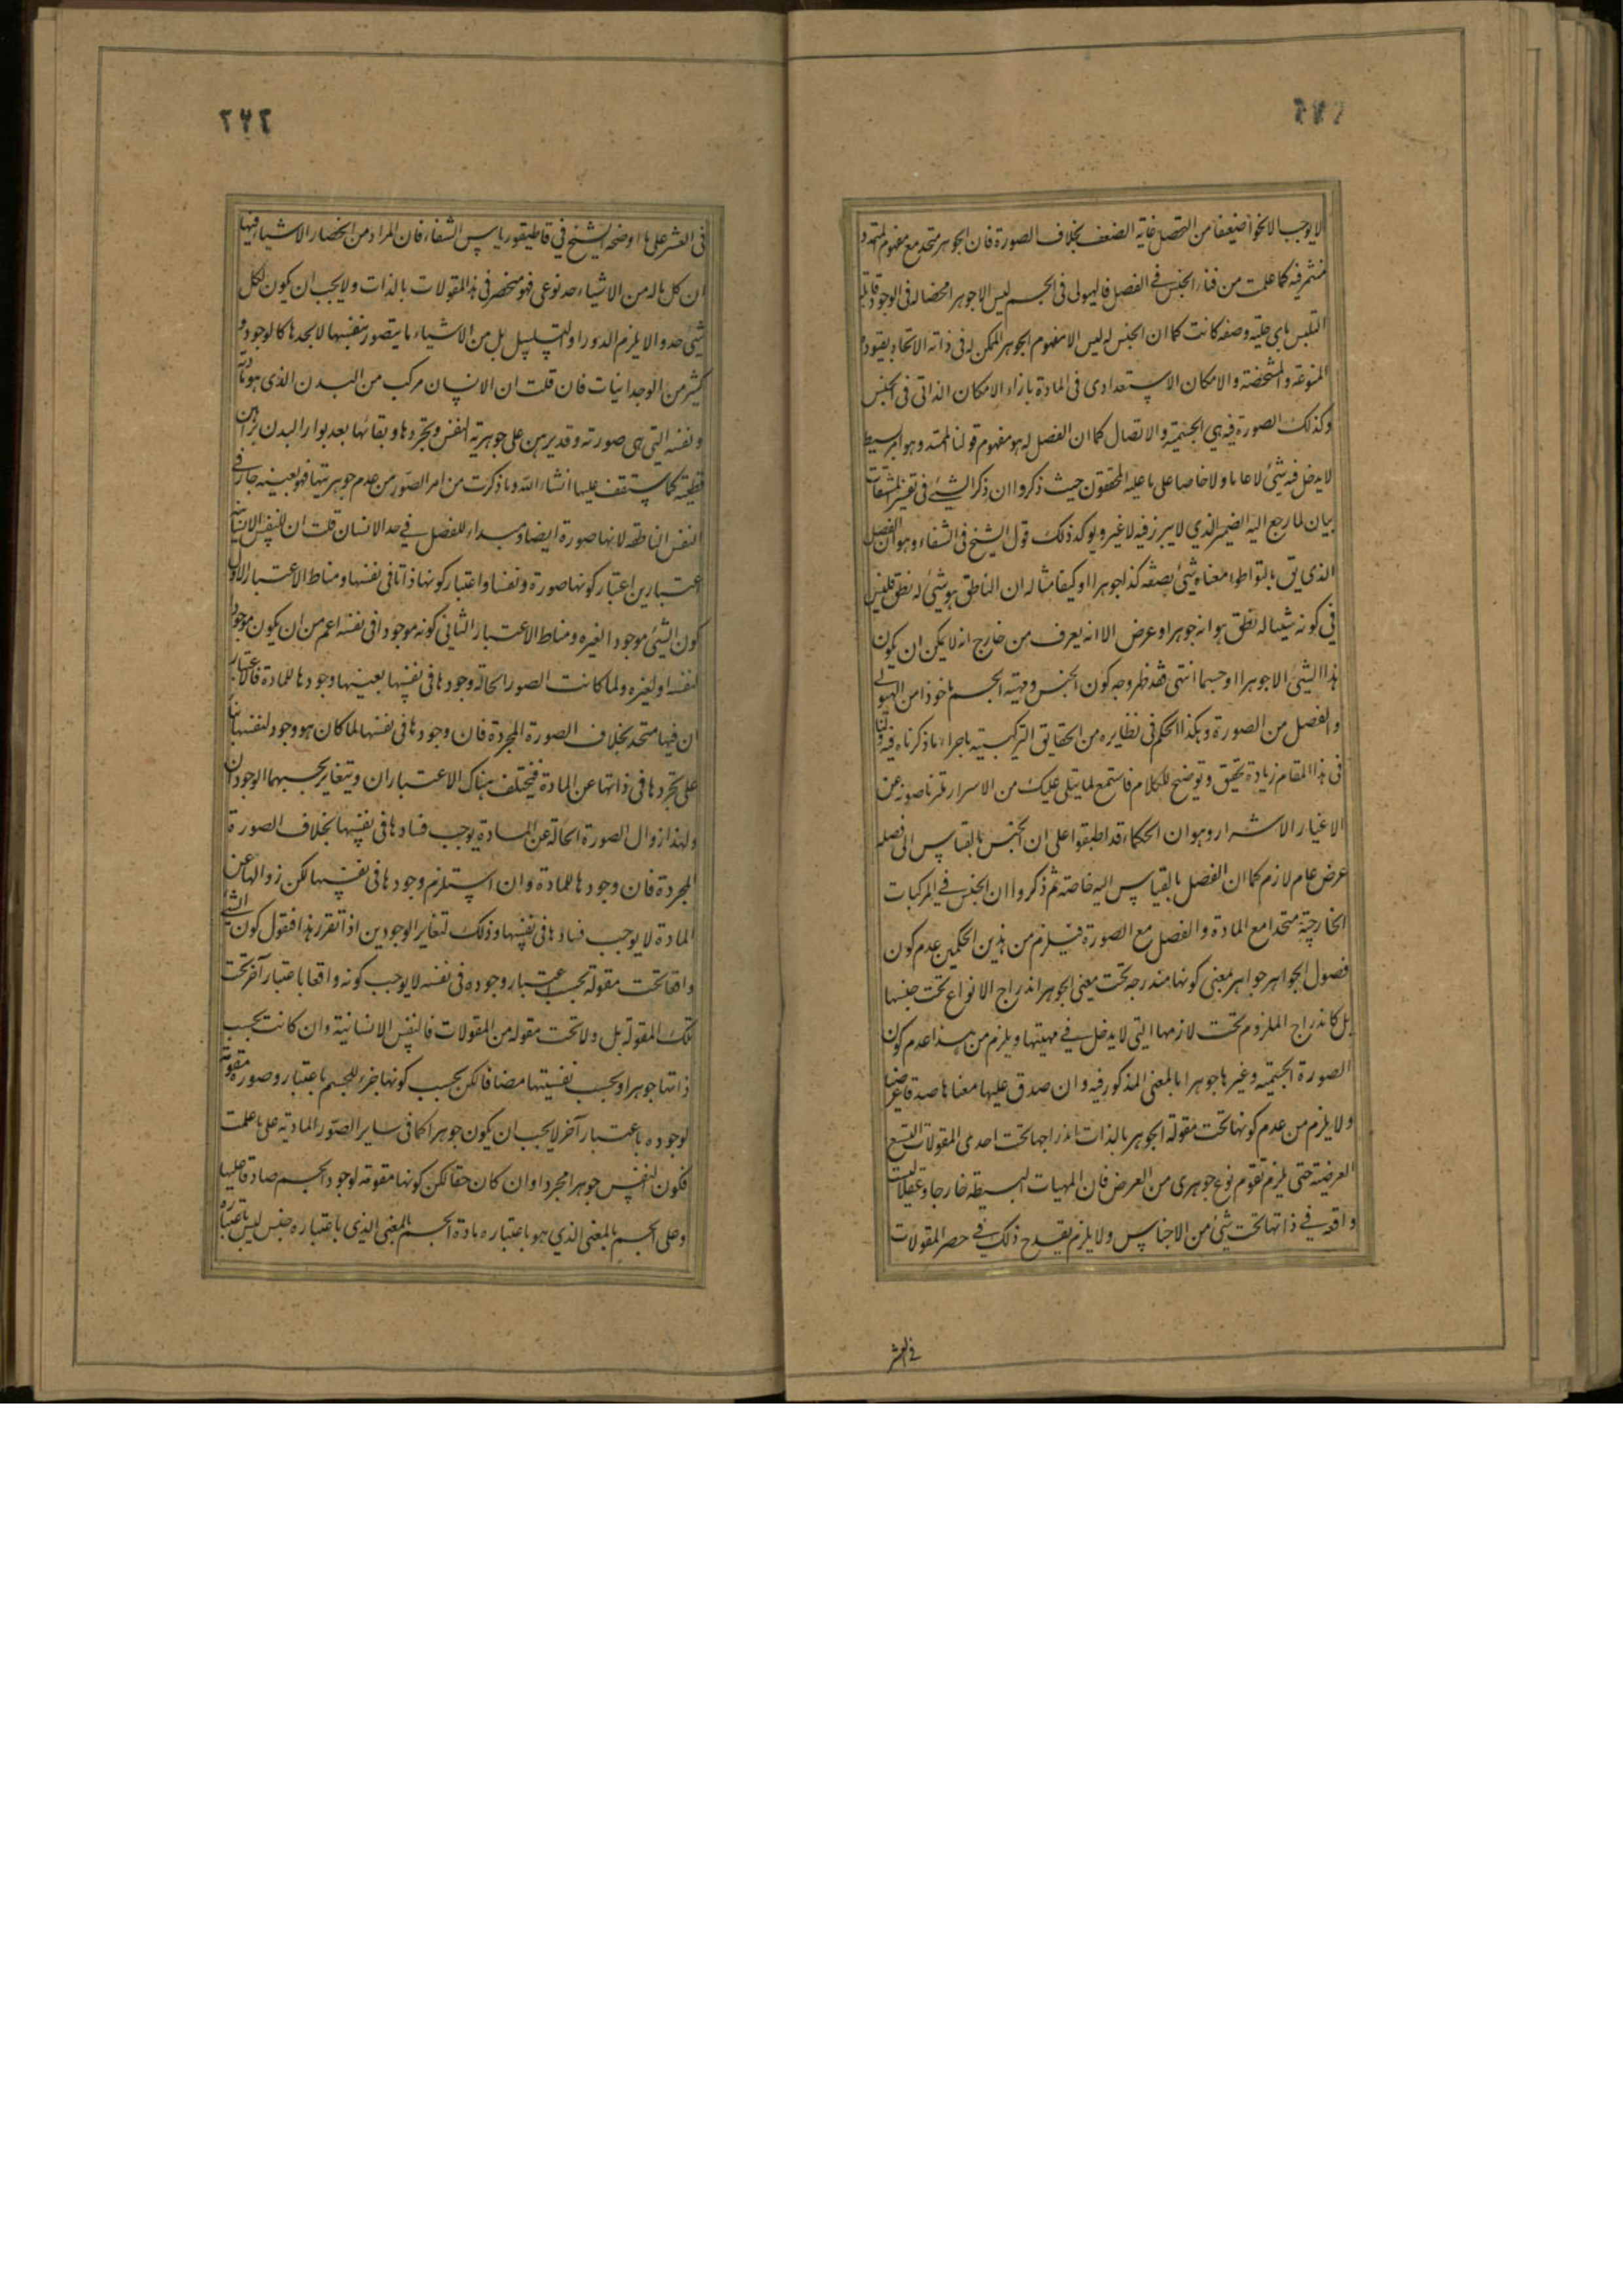 لا يوجب الا نحوا ضعيفا من التحصل غاية الضعف بخلاف الصورة فان الجوهر متحد مع مفهوم الممتد و
فيه كما علمت من فناء الجنس في الفصل فالهيولى فى الجسم ليس الا جوهرا محضا له فى الوجود قابلية
التلبس باى حلية وصفة كانت كما ان الجنس له ليس الا مفهوم الجوهر الممكن له فى ذاته الاتحاد بقيوده
المنوعة والمشخصة والامكان الاستعدادى فى المادة بازاء الامكان الذاتى فى الجنس
وكذلك الصورة فيه هى الجسمية والاتصال كما ان الفصل له هو مفهوم قولنا الممتد وهو امر بسيط
لا يدخل فيه شئ لا عاما ولا خاصا على ما عليه المحققون حيث ذكروا ان ذكر الشئ فى تفسير المشتقات
بيان لما رجع اليه الضمير الذي لا يبرز فيه لا غير ويوكد ذلك قول الشيخ فى الشفاء وهو ان الفصل
الذى يق بالتواطوء معناه شئ بصفة كذا جوهرا او كيفا مثاله ان الناطق هو شئ له نطق فليس
في كونه شيئا له نطق هو انه جوهر او عرض الا انه يعرف من خارج انه لا يمكن ان يكون
هذا الشئ الا جوهرا او جسما انتهى فقد ظهر وجه كون الجنس ومهية الجسم ماخوذا من الهيولى
والفصل من الصورة وهكذا الحكم فى نظايره من الحقايق التركيبية باجراء ما ذكرناه فيه ولنا
فى هذا المقام زيادة تحقيق وتوضيح للكلام فاستمع لما يتلى عليك من الاسرار ملتزما صونه عن
الاغيار الاشرار وهو ان الحكماء قد اطبقوا على ان الجنس بالقياس الى فصله
عرض عام لازم كما ان الفصل بالقياس اليه خاصة ثم ذكروا ان الجنس في المركبات
الخارجية متحد مع المادة والفصل مع الصورة فيلزم من هذين الحكمين عدم كون
فصول الجواهر جواهر بمعنى كونها مندرجة تحت معنى الجوهر اندراج الانواع تحت جنسها
بل كاندراج الملزوم تحت لازمها التى لا يدخل في مهيتها ويلزم من هذا عدم كون
الصورة الجسمية وغيرها جوهرا بالمعنى المذكور فيه وان صدق عليها معناها صدقا عرضيا
ولا يلزم من عدم كونها تحت مقولة الجوهر بالذات اندراجها تحت احدى المقولات التسع
العرضية حتى يلزم تقوم نوع جوهرى من العرض فان المهيات البسيطة خارجا وعقلا ليست
واقعة في ذاتها تحت شئ من الاجناس ولا يلزم يقدح ذلك في حصر المقولات
في العشر
٢٧٦
فى العشر على ما اوضحه الشيخ في قاطيقورياس الشفاء فان المراد من انحصار الاشياء فيها
ان كل ما له من الاشياء حد نوعى فهو منحصر فى هذه المقولات بالذات ولا يجب ان يكون لكل
شئ حد والا يلزم الدور او التسلسل بل من الاشياء ما يتصور بنفسها لا بحدها كالوجود و
كثير من الوجدانيات فان قلت ان الانسان مركب من البدن الذى هو مادته
ونفسه التى هى صورته وقد برهن على جوهرية النفس وتجردها وبقائها بعد بوار البدن ببراهين
قطعية كما ستقف عليها انشاء الله وما ذكرت من امر الصور من عدم جوهريتها فهو بعينه جار في
النفس الناطقة لانها صورة ايضا ومبداء للفصل في حد الانسان قلت ان للنفس الانسانية
اعتبارين اعتبار كونها صورة ونفسا واعتبار كونها ذاتا فى نفسها ومناط الاعتبار الاول
كون الشئ موجودا لغيره ومناط الاعتبار الثانى كونه موجودا فى نفسه اعم من ان يكون موجودا
لنفسه او لغيره ولما كانت الصور الحالة وجودها فى نفسها بعينها وجودها للمادة فالاعتبار
ان فيها متحد بخلاف الصورة المجردة فان وجودها فى نفسها لما كان هو وجود لنفسها بناء
على تجردها فى ذاتها عن المادة فيختلف هناك الاعتباران ويتغاير بحسبهما الوجودان
ولهذا زوال الصورة الحالة عن المادة يوجب فسادها فى نفسها بخلاف الصورة
المجردة فان وجودها للمادة وان استلزم وجودها فى نفسها لكن زوالها عن
المادة لا يوجب فسادها فى نفسها وذلك لتغاير الوجودين اذا تقرر هذا فنقول كون الشئ
واقعا تحت مقولة بحسب اعتبار وجوده فى نفسه لا يوجب كونه واقعا باعتبار آخر تحت
تلك المقولة بل ولا تحت مقولة من المقولات فالنفس الانسانية وان كانت بحسب
ذاتها جوهرا وبحسب نفسيتها مضافا لكن بحسب كونها جزء للجسم باعتبار وصورة مقومة
لوجوده باعتبار آخر لا يجب ان يكون جوهرا كما فى ساير الصور المادية على ما علمت
فكون النفس جوهرا مجردا وان كان حقا لكن كونها مقومة لوجود الجسم صادقا عليها
وعلى الجسم بالمعنى الذي هو باعتباره مادة الجسم بالمعنى الذى باعتباره جنس ليس باعتباره